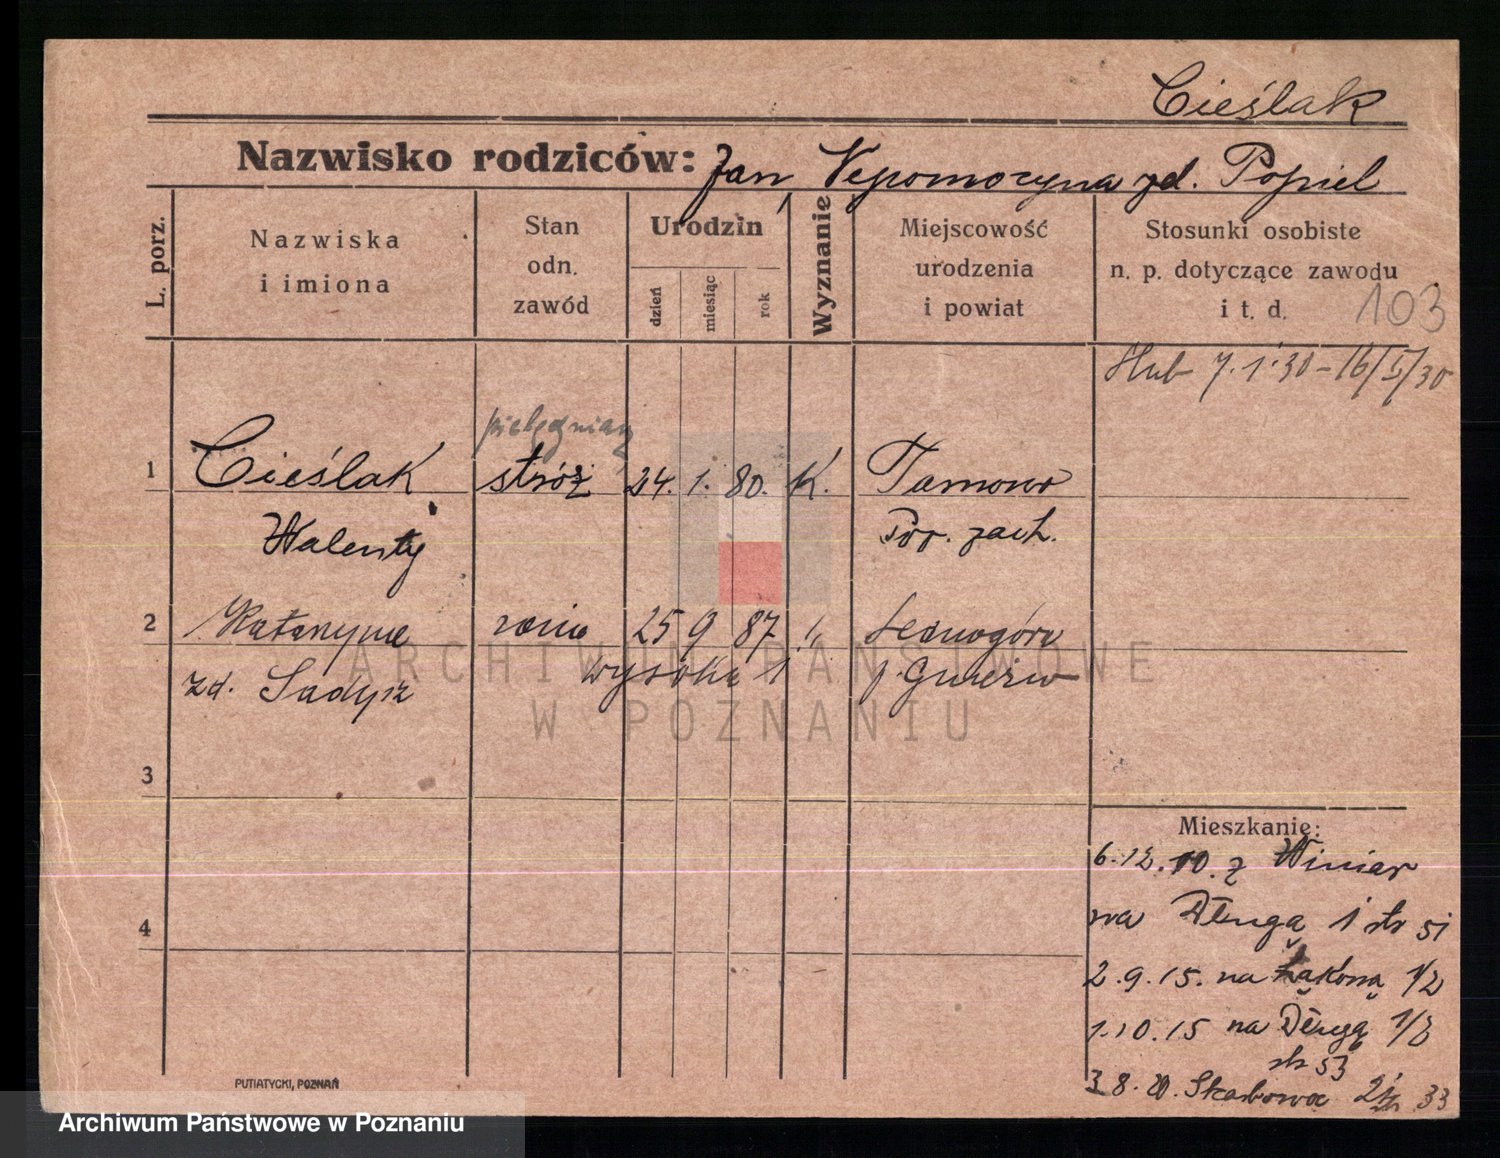 Cieślak
Nazwisko rodziców: Jan, Nepomocyna zd. Popiel
L. porz.
Nazwiska
i imiona
Stan
odn.
zawód
Urodzin
dzień
miesiąc
rok
Wyznanie
Miejscowość
urodzenia
i powiat
Stosunki osobiste
n. p. dotyczące zawodu
i t. d.
103
7.1.30 – 16/I/30
pielęgniarz
1 Cieślak stróż 24. 1. 80. K. Tarnowo
Walenty Poz. zach.
2 Katarzyna żona 25 9 87 Jelonek
zd. Sadysz wysoka 1 p. Gniezno
3
4
Mieszkanie:
6.12.10. z Winiar
na Długą 1 str 51
2.9.15. na Łąkową 1/2
1.10.15 na Długą 1/3
str 53
3.8.20. Skarbowa 33
PUTIATYCKI, POZNAŃ
ARCHIWUM PAŃSTWOWE
W POZNANIU
Archiwum Państwowe w Poznaniu